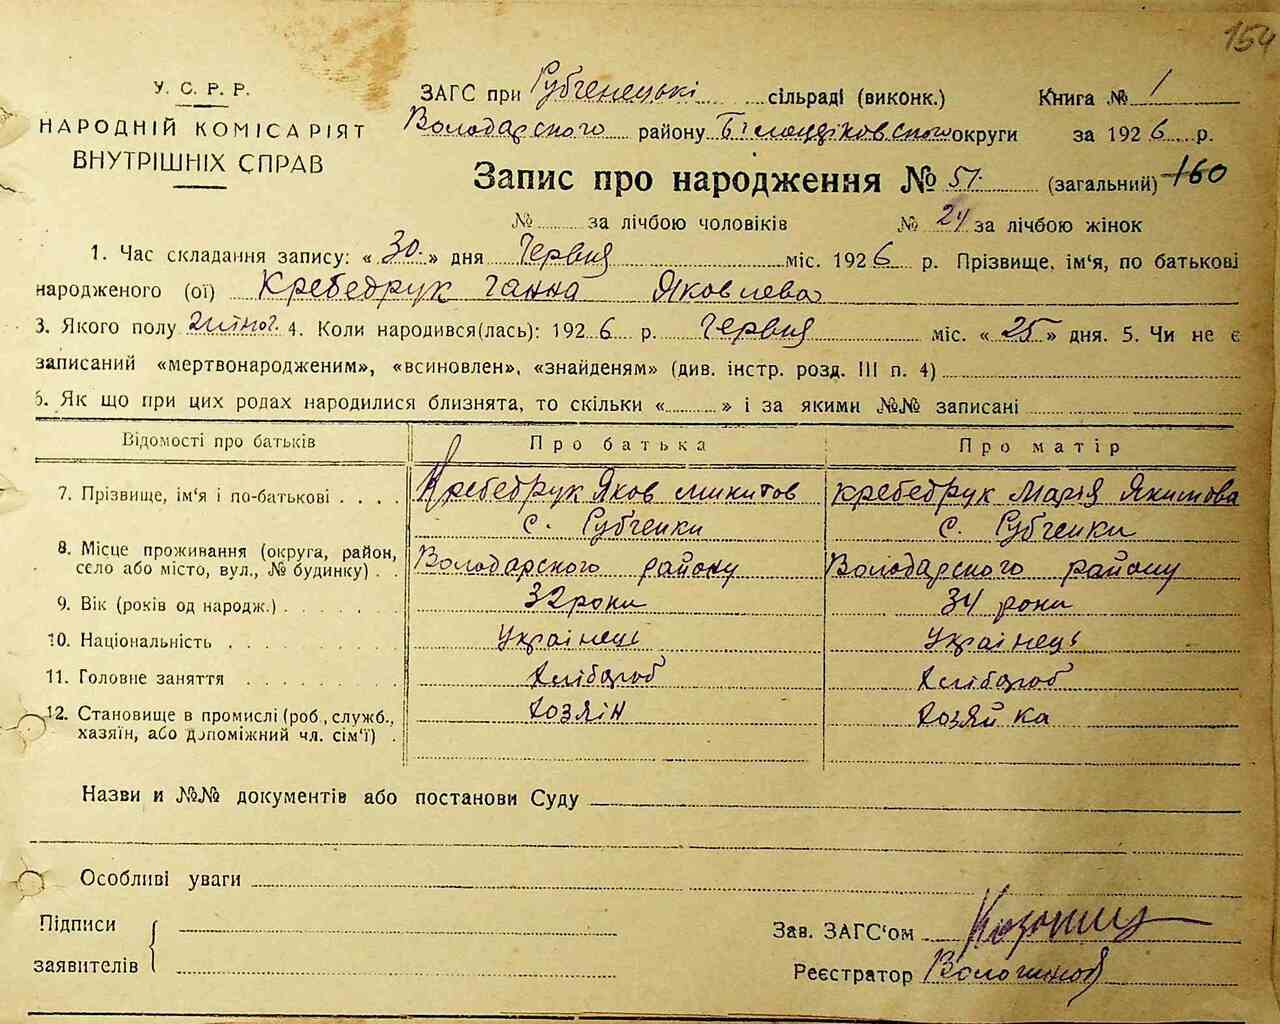 154
У. С. Р. Р.
НАРОДНІЙ КОМІСАРІЯТ
ВНУТРІШНІХ СПРАВ
ЗАГС при Рубченецькі сільраді (виконк.) Книга № 1
Володарского району Білоцерківского округи за 1926 р.
Запис про народження № 51 (загальний) 160
№ за лічбою чоловіків № 24 за лічбою жінок
1. Час складання запису: « 30 » дня Червня міс. 1926 р. Прізвище, ім'я, по батькові
народженого (ої) Кребедрук Ганна Яковлева
3. Якого полу жіноч. 4. Коли народився(лась): 1926 р. Червня міс. « 25 » дня. 5. Чи не є
записаний «мертвонародженим», «всиновлен», «знайденям» (див. інстр. розд. III п. 4)
6. Як що при цих родах народилися близнята, то скільки « » і за якими №№ записані
Відомості про батьків Про батька Про матір
7. Прізвище, ім'я і по-батькові Кребедрук Яков Микитов Кребедрук Марія Якимова
с. Рубченки с. Рубченки
8. Місце проживання (округа, район, село або місто, вул., № будинку) Володарского району Володарского району
9. Вік (років од народж.) 32 роки 34 роки
10. Національність Українець Українець
11. Головне заняття Хлібороб Хлібороб
12. Становище в промислі (роб., служб., хазяїн, або допоміжний чл. сім'ї) Хозяін Хозяйка
Назви и №№ документів або постанови Суду
Особливі уваги
Підписи
заявителів
Зав. ЗАГС'ом
Реєстратор